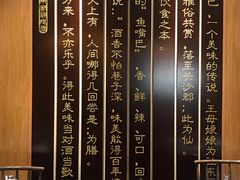 巴，一个美味的传说。王母娘娘为
雅俗共赏，落至长沙郡；此为仙
饮食之本。
的，鱼嘴巴，香、鲜、辣、可口，回
说：“酒香不怕巷子深，味美
百年
上有，人间哪得几回尝是：为膳
方来，不亦乐乎。得此美味当对酒当歌